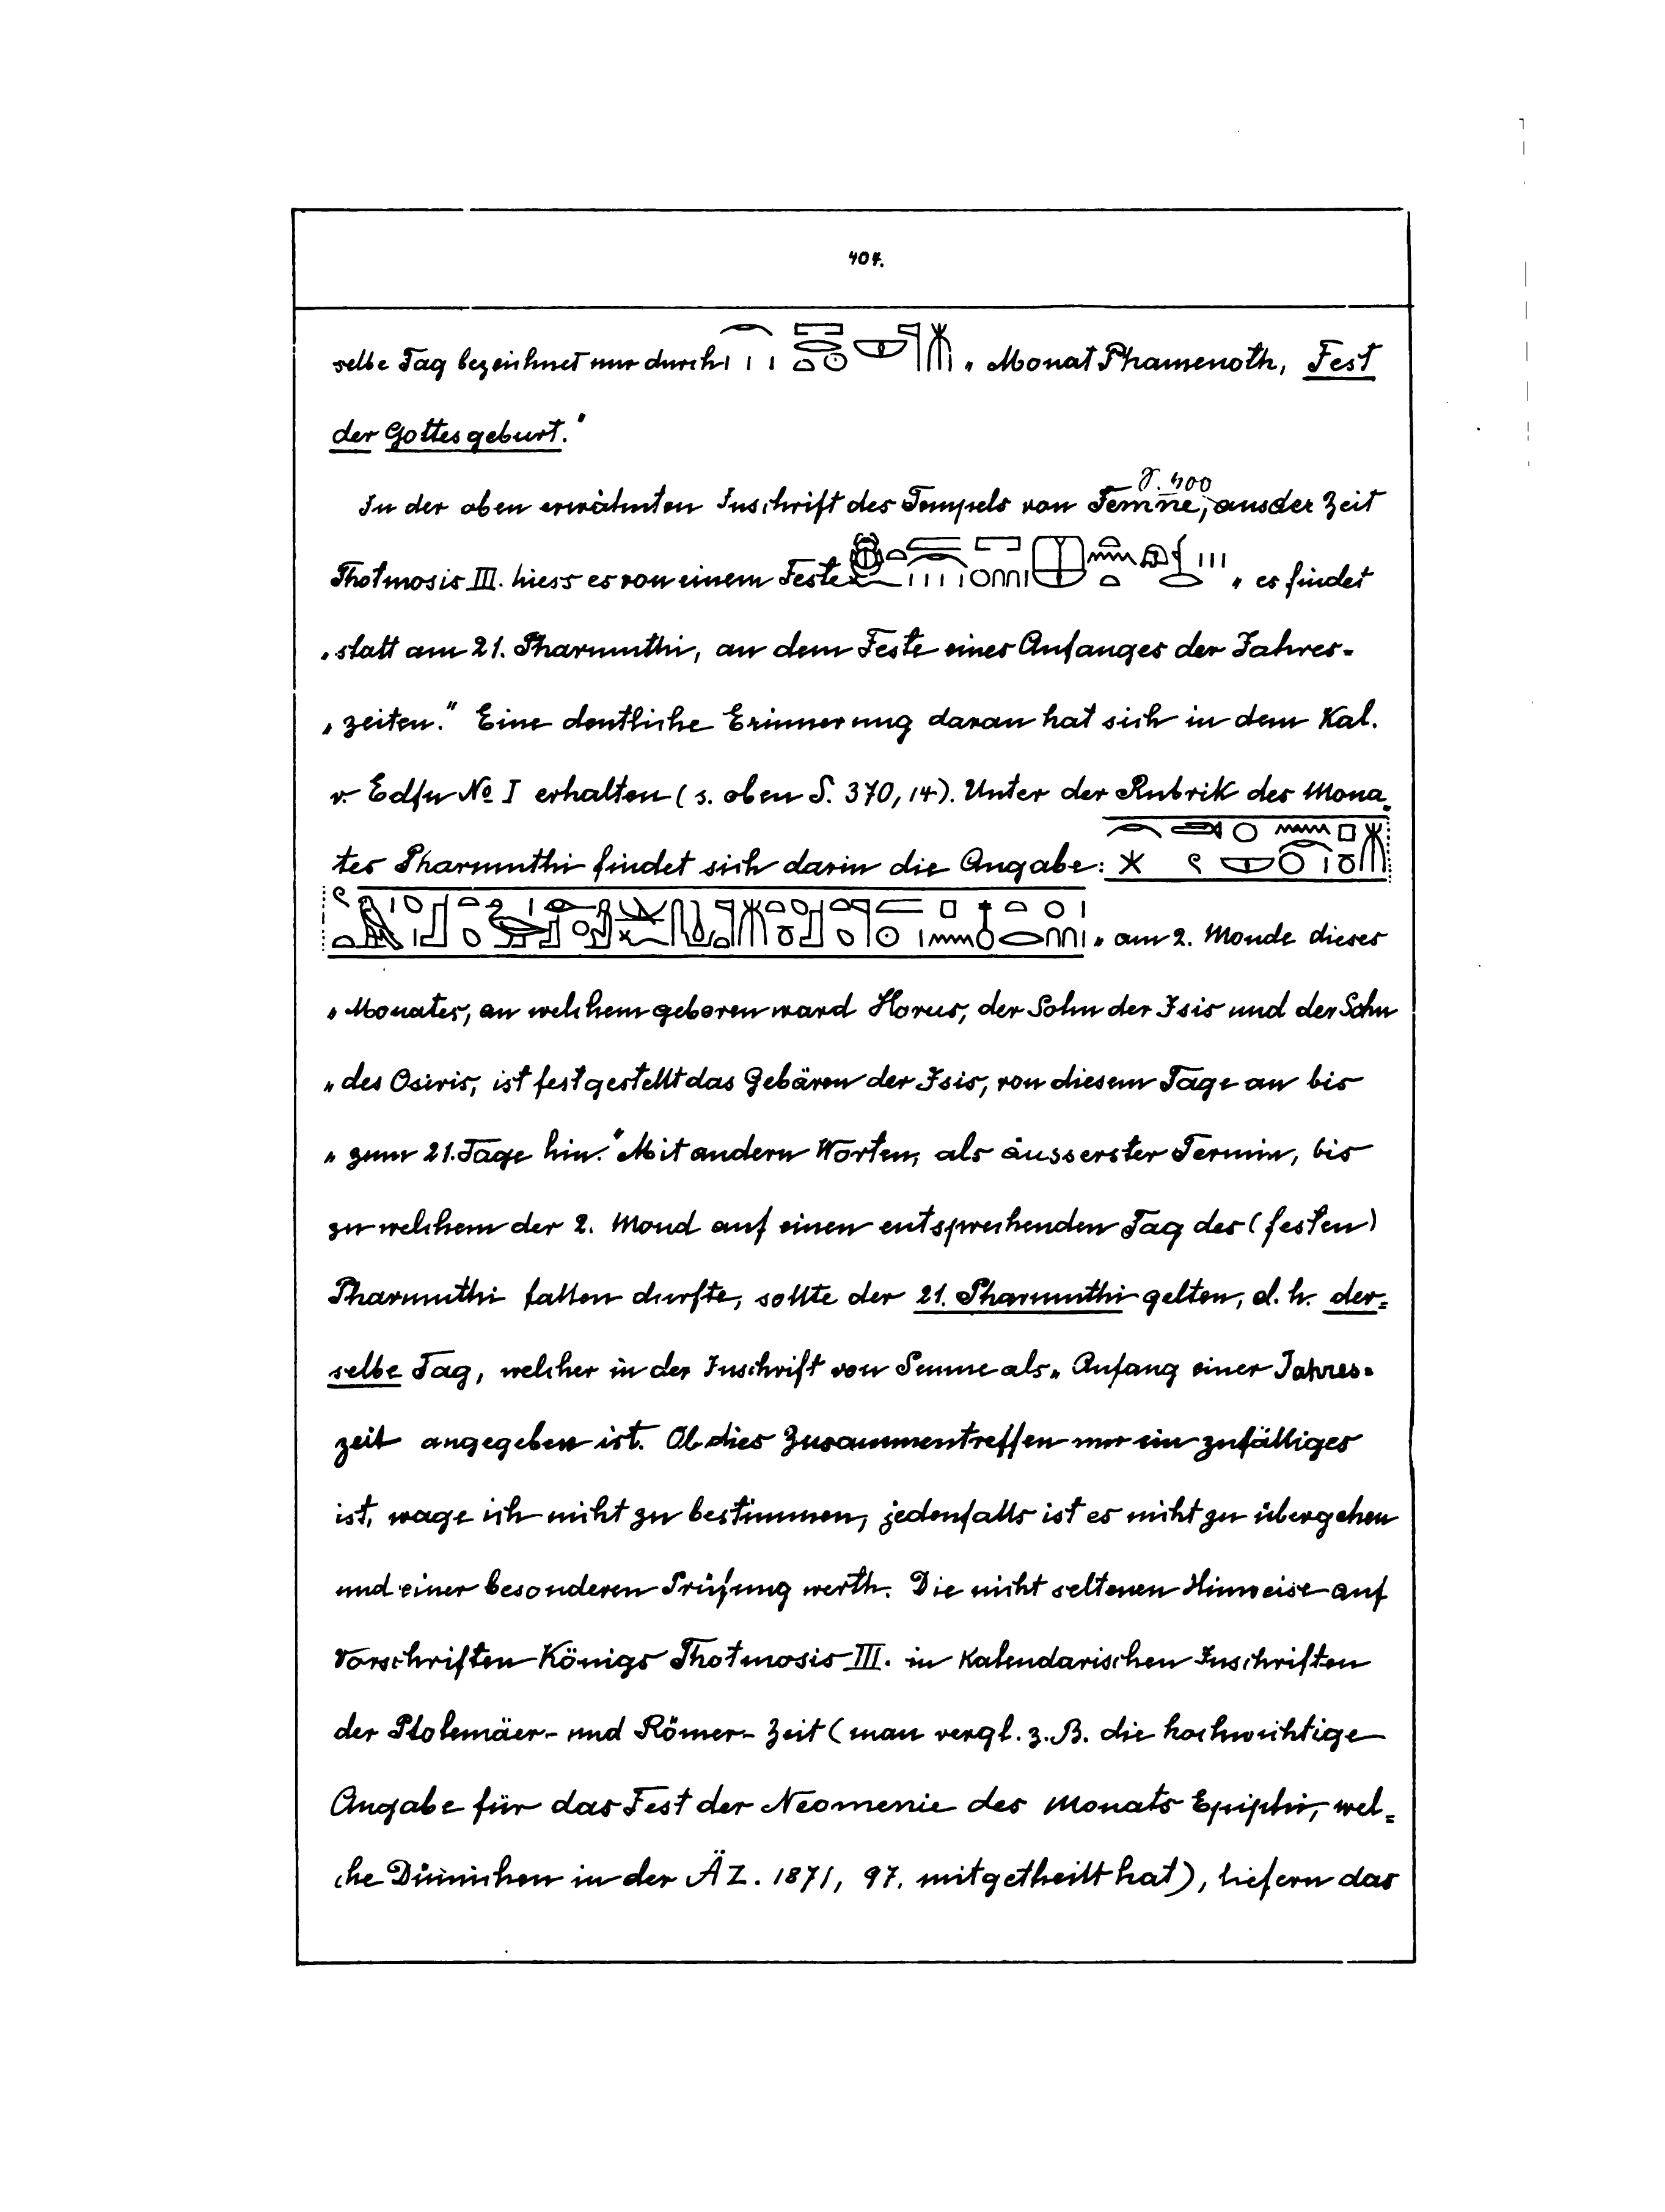 404.
selbe Tag bezeichnet nur durch „Monat Phamenoth, Fest
der Gottesgeburt."
S. 400
In der oben erwähnten Inschrift des Tempels von Semne, aus der Zeit
Thotmosis III. hiess es von einem Feste „es findet
„statt am 21. Pharmuthi, an dem Feste eines Anfanges der Jahres-
„zeiten." Eine deutliche Erinnerung daran hat sich in dem Kal.
v. Edfu No I erhalten (s. oben S. 370, 14). Unter der Rubrik des Mona-
tes Pharmuthi findet sich darin die Angabe:
„am 2. Monde dieses
„Monates, an welchem geboren ward Horus, der Sohn der Isis und der Sohn
„des Osiris, ist festgestellt das Gebären der Isis, von diesem Tage an bis
„zum 21. Tage hin." Mit andern Worten, als äusserster Termin, bis
zu welchem der 2. Mond auf einen entsprechenden Tag des (festen)
Pharmuthi fallen durfte, sollte der 21. Pharmuthi gelten, d. h. der=
selbe Tag, welcher in der Inschrift von Semne als „Anfang einer Jahres=
zeit angegeben ist. Ob dies Zusammentreffen nur ein zufälliges
ist, wage ich nicht zu bestimmen, jedenfalls ist es nicht zu übergehen
und einer besonderen Prüfung werth. Die nicht seltenen Hinweise auf
Vorschriften Königs Thotmosis III. in kalendarischen Inschriften
der Ptolemäer- und Römer-Zeit (man vergl. z. B. die hochwichtige
Angabe für das Fest der Neomenie des Monats Epiphi, wel=
che Dümichen in der ÄZ. 1871, 97. mitgetheilt hat), liefern das